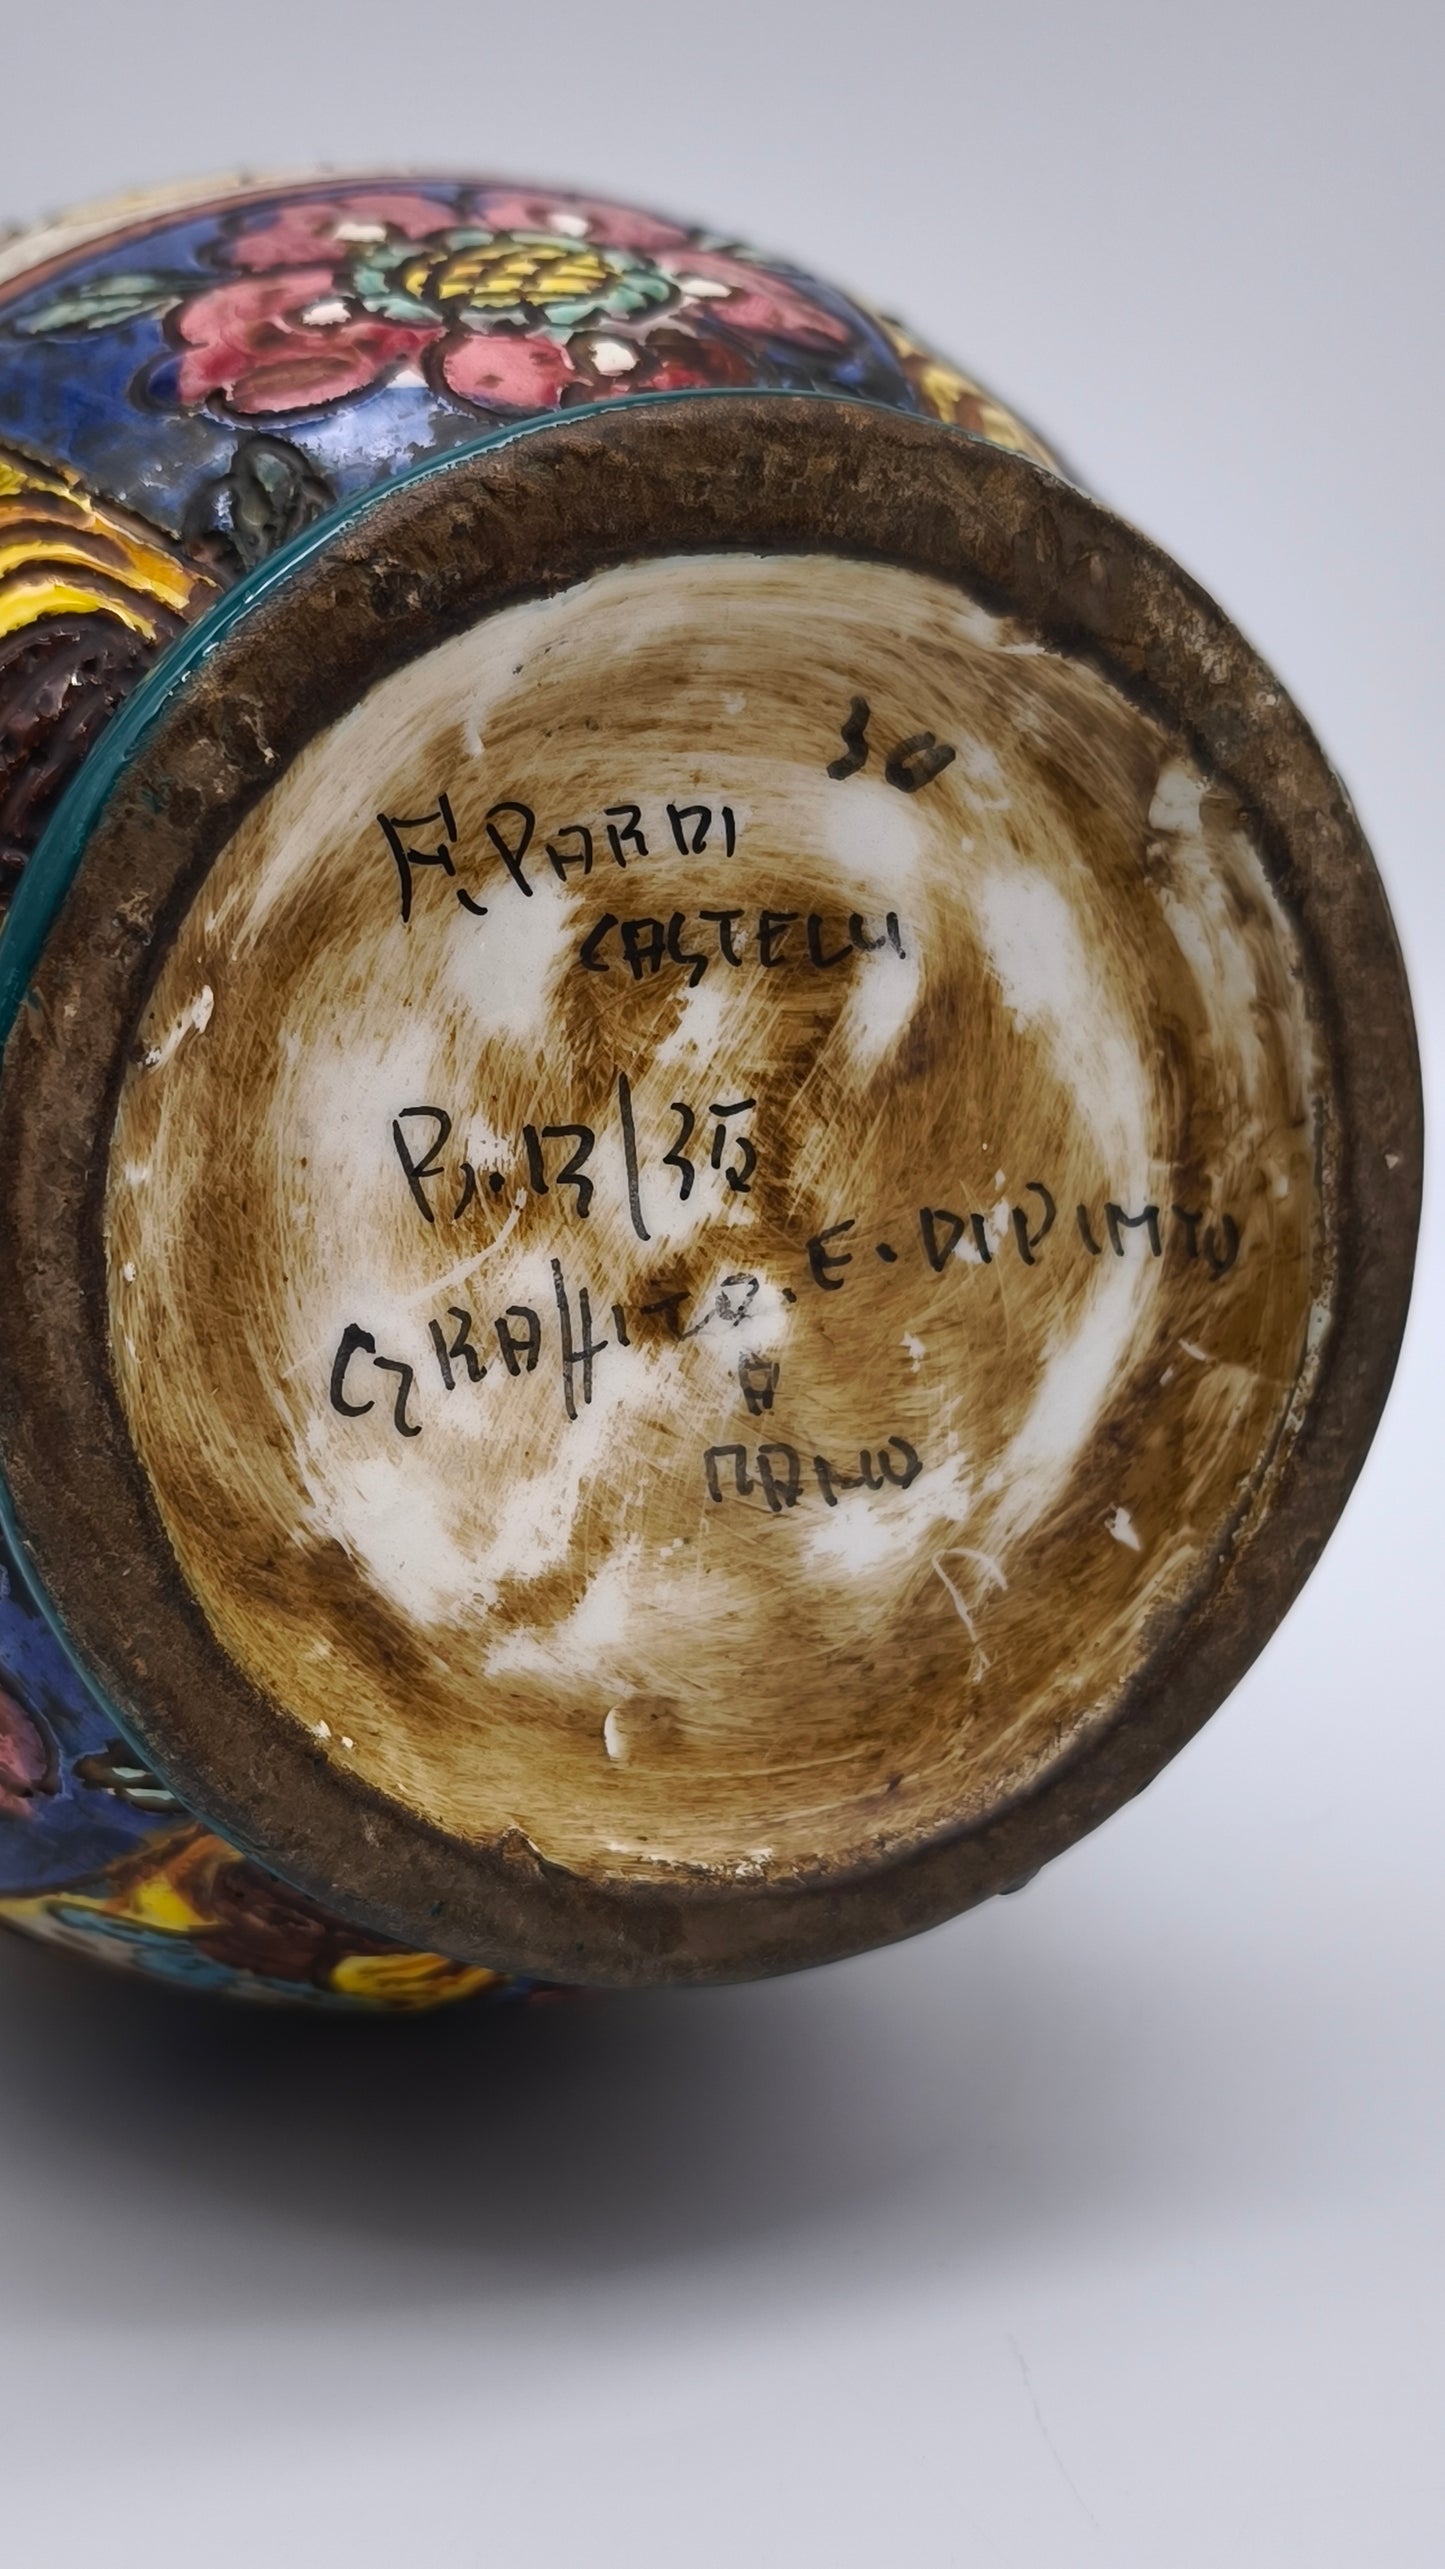 30
F. PARDI
CASTELLI
B. 13/35
GRAFFITO. E. DIPINTO
A
MANO